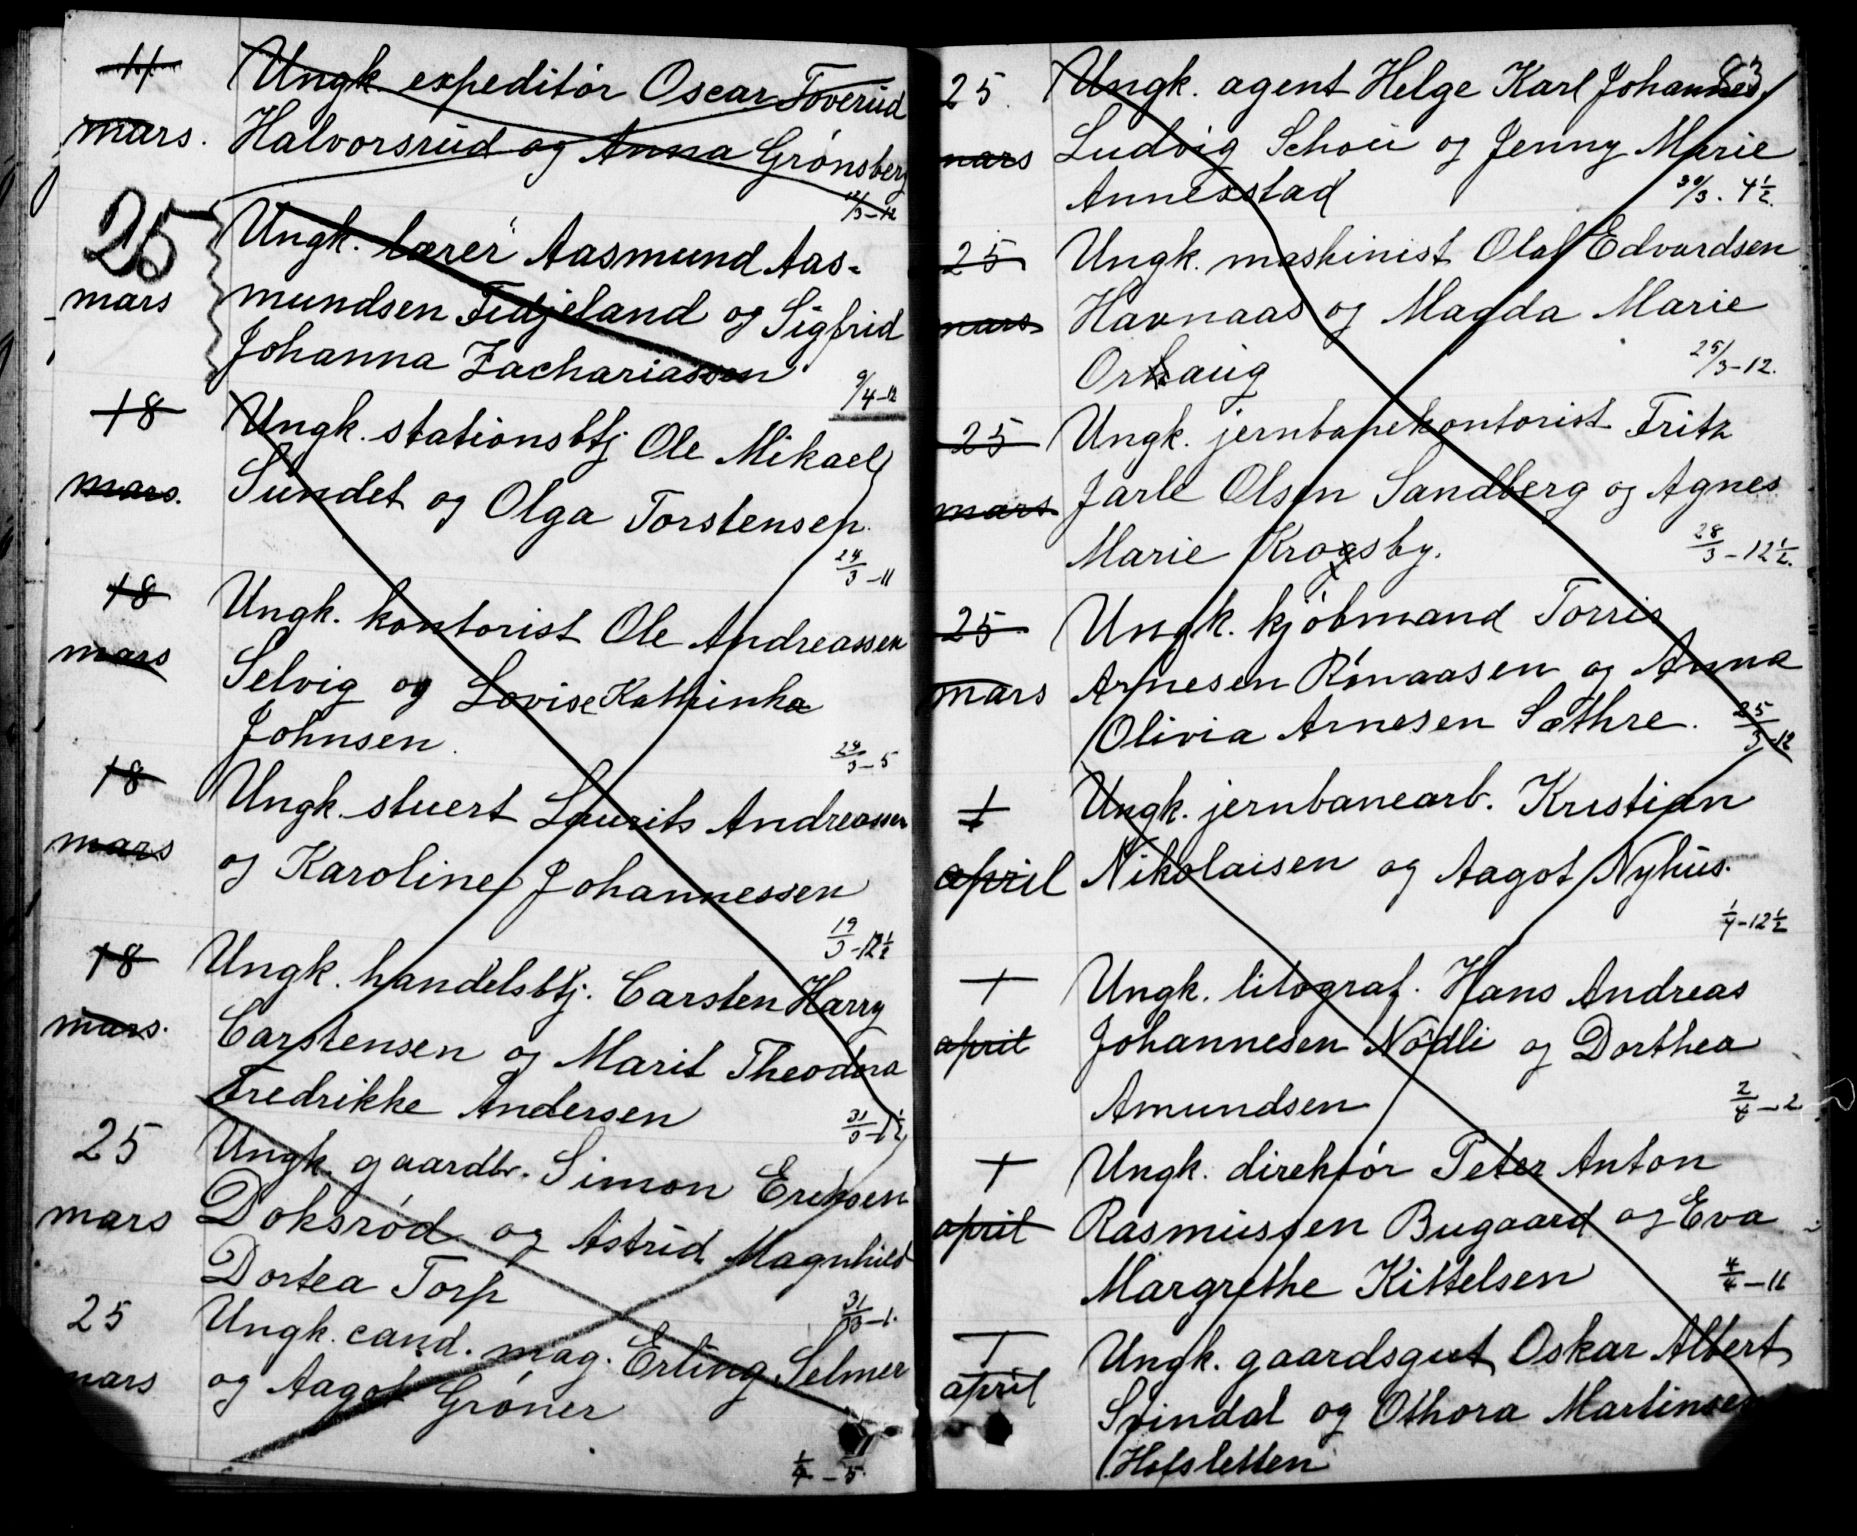 11 Ungk. expeditör Oscar Toverud
mars. Halvorsrud og Anna Grönsberg
11/3-12
25 Ungk. lærer Aasmund Aas-
mars mundsen Fidjeland og Sigfrid
Johanna Zachariassen
9/4-12
18 Ungk. stationsbtj Ole Mikael
mars. Sundet og Olga Torstensen.
24/3-11
18 Ungk. kontorist Ole Andreassen
mars Selvig og Lovise Kathinka
Johnsen.
24/3-5
18 Ungk. stuert Laurits Andreassen
mars og Karoline Johannessen
19/3-12½
18 Ungk. handelsbtj. Carsten Harry
mars. Carstensen og Marit Theodora
Fredrikke Andersen
31/3
25 Ungk. gaardbr. Simon Eriksen
mars Doksröd og Astrid Magnhild
Dortea Torp
31/3-1.
25 Ungk. cand. mag. Erling Selmer
mars og Aagot Gröner
1/4-5.
83
25. Ungk. agent Helge Karl Johannes
mars Ludvig Schou og Jenny Marie
Annexstad 30/3. 4½.
25 Ungk. maskinist Olaf Edvardsen
mars Havnaas og Magda Marie
Orhaug 25/3-12.
25 Ungk. jernbanekontorist Fritz
mars Jarle Olsen Sandberg og Agnes
Marie Krogsby. 28/3-12½.
25 Ungk. kjöbmand Torris
mars Arnesen Rönaasen og Anna
Olivia Arnesen Sæthre. 25/3-12
1 Ungk. jernbanearb. Kristian
april Nikolaisen og Aagot Nyhus.
1/4-12½
1 Ungk. litograf. Hans Andreas
april Johannesen Nödli og Dorthea
Amundsen 2/4-2
1 Ungk. direktör Peter Anton
april Rasmussen Bugaard og Eva
Margrethe Kittelsen 4/4-11
1 Ungk. gaardsgut Oskar Albert
april Svindal og Othora Martinsen
Hofsletten